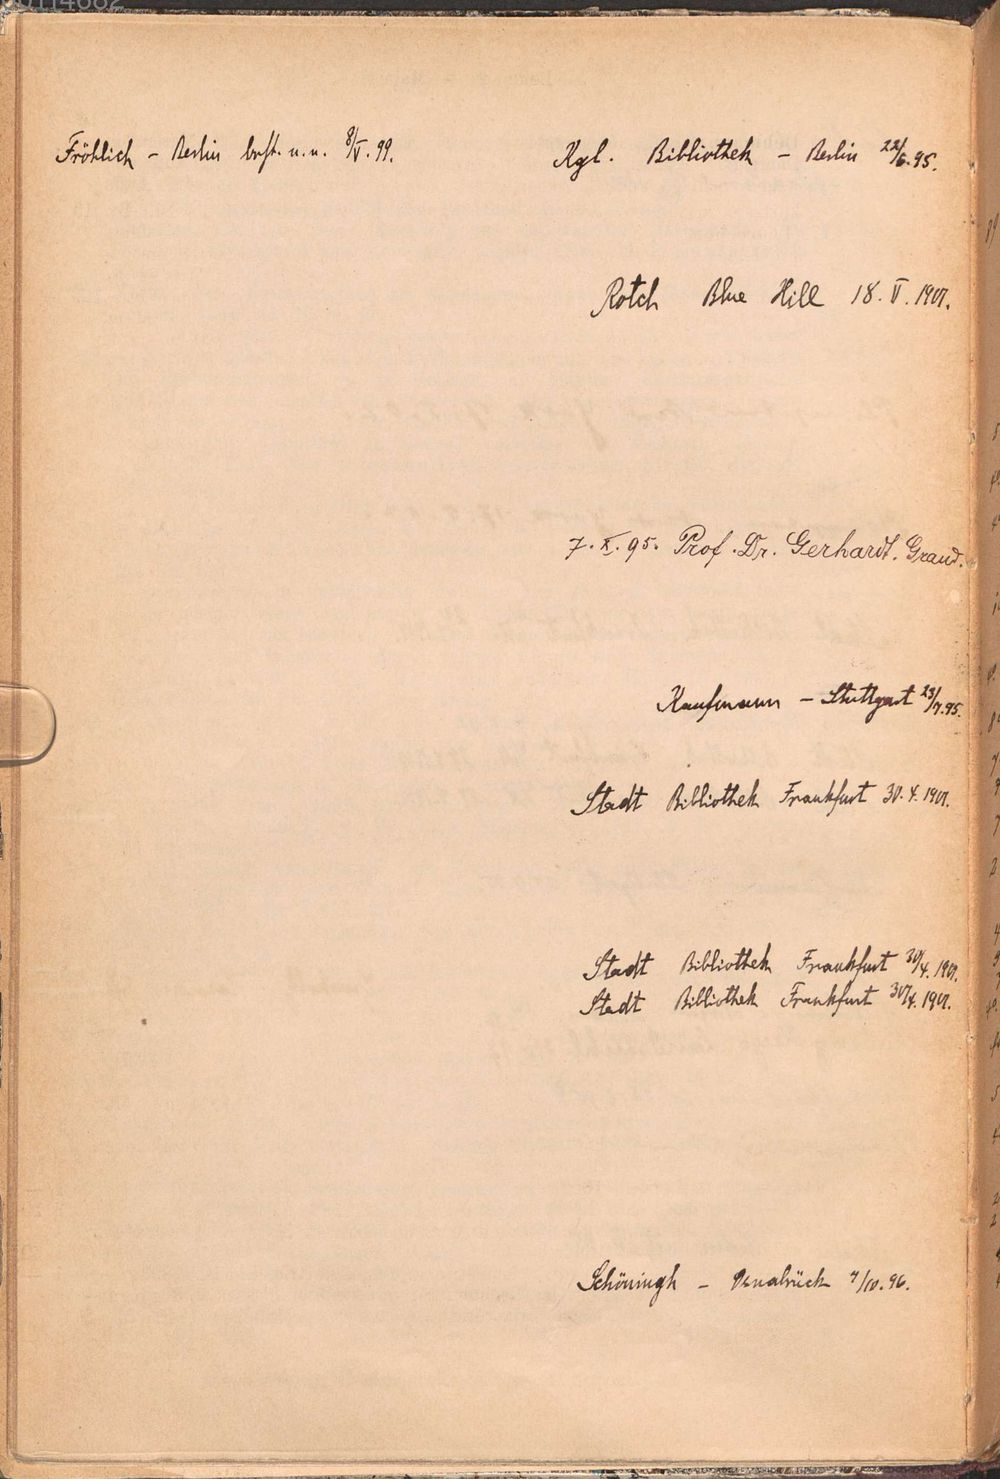 Fröhlich – Berlin best. u. u. 8/V. 99.
Kgl. Bibliothek – Berlin 22/6. 95.
Rotch Blue Hill 18. V. 1901.
7. X. 95. Prof. Dr. Gerhardt. Graud.
Kaufmann – Stuttgart 23/7. 95.
Stadt Bibliothek Frankfurt 30. 4. 1901.
Stadt Bibliothek Frankfurt 30/4. 1901.
Stadt Bibliothek Frankfurt 30/4. 1901.
Schöningh – Osnabrück 7/10. 96.